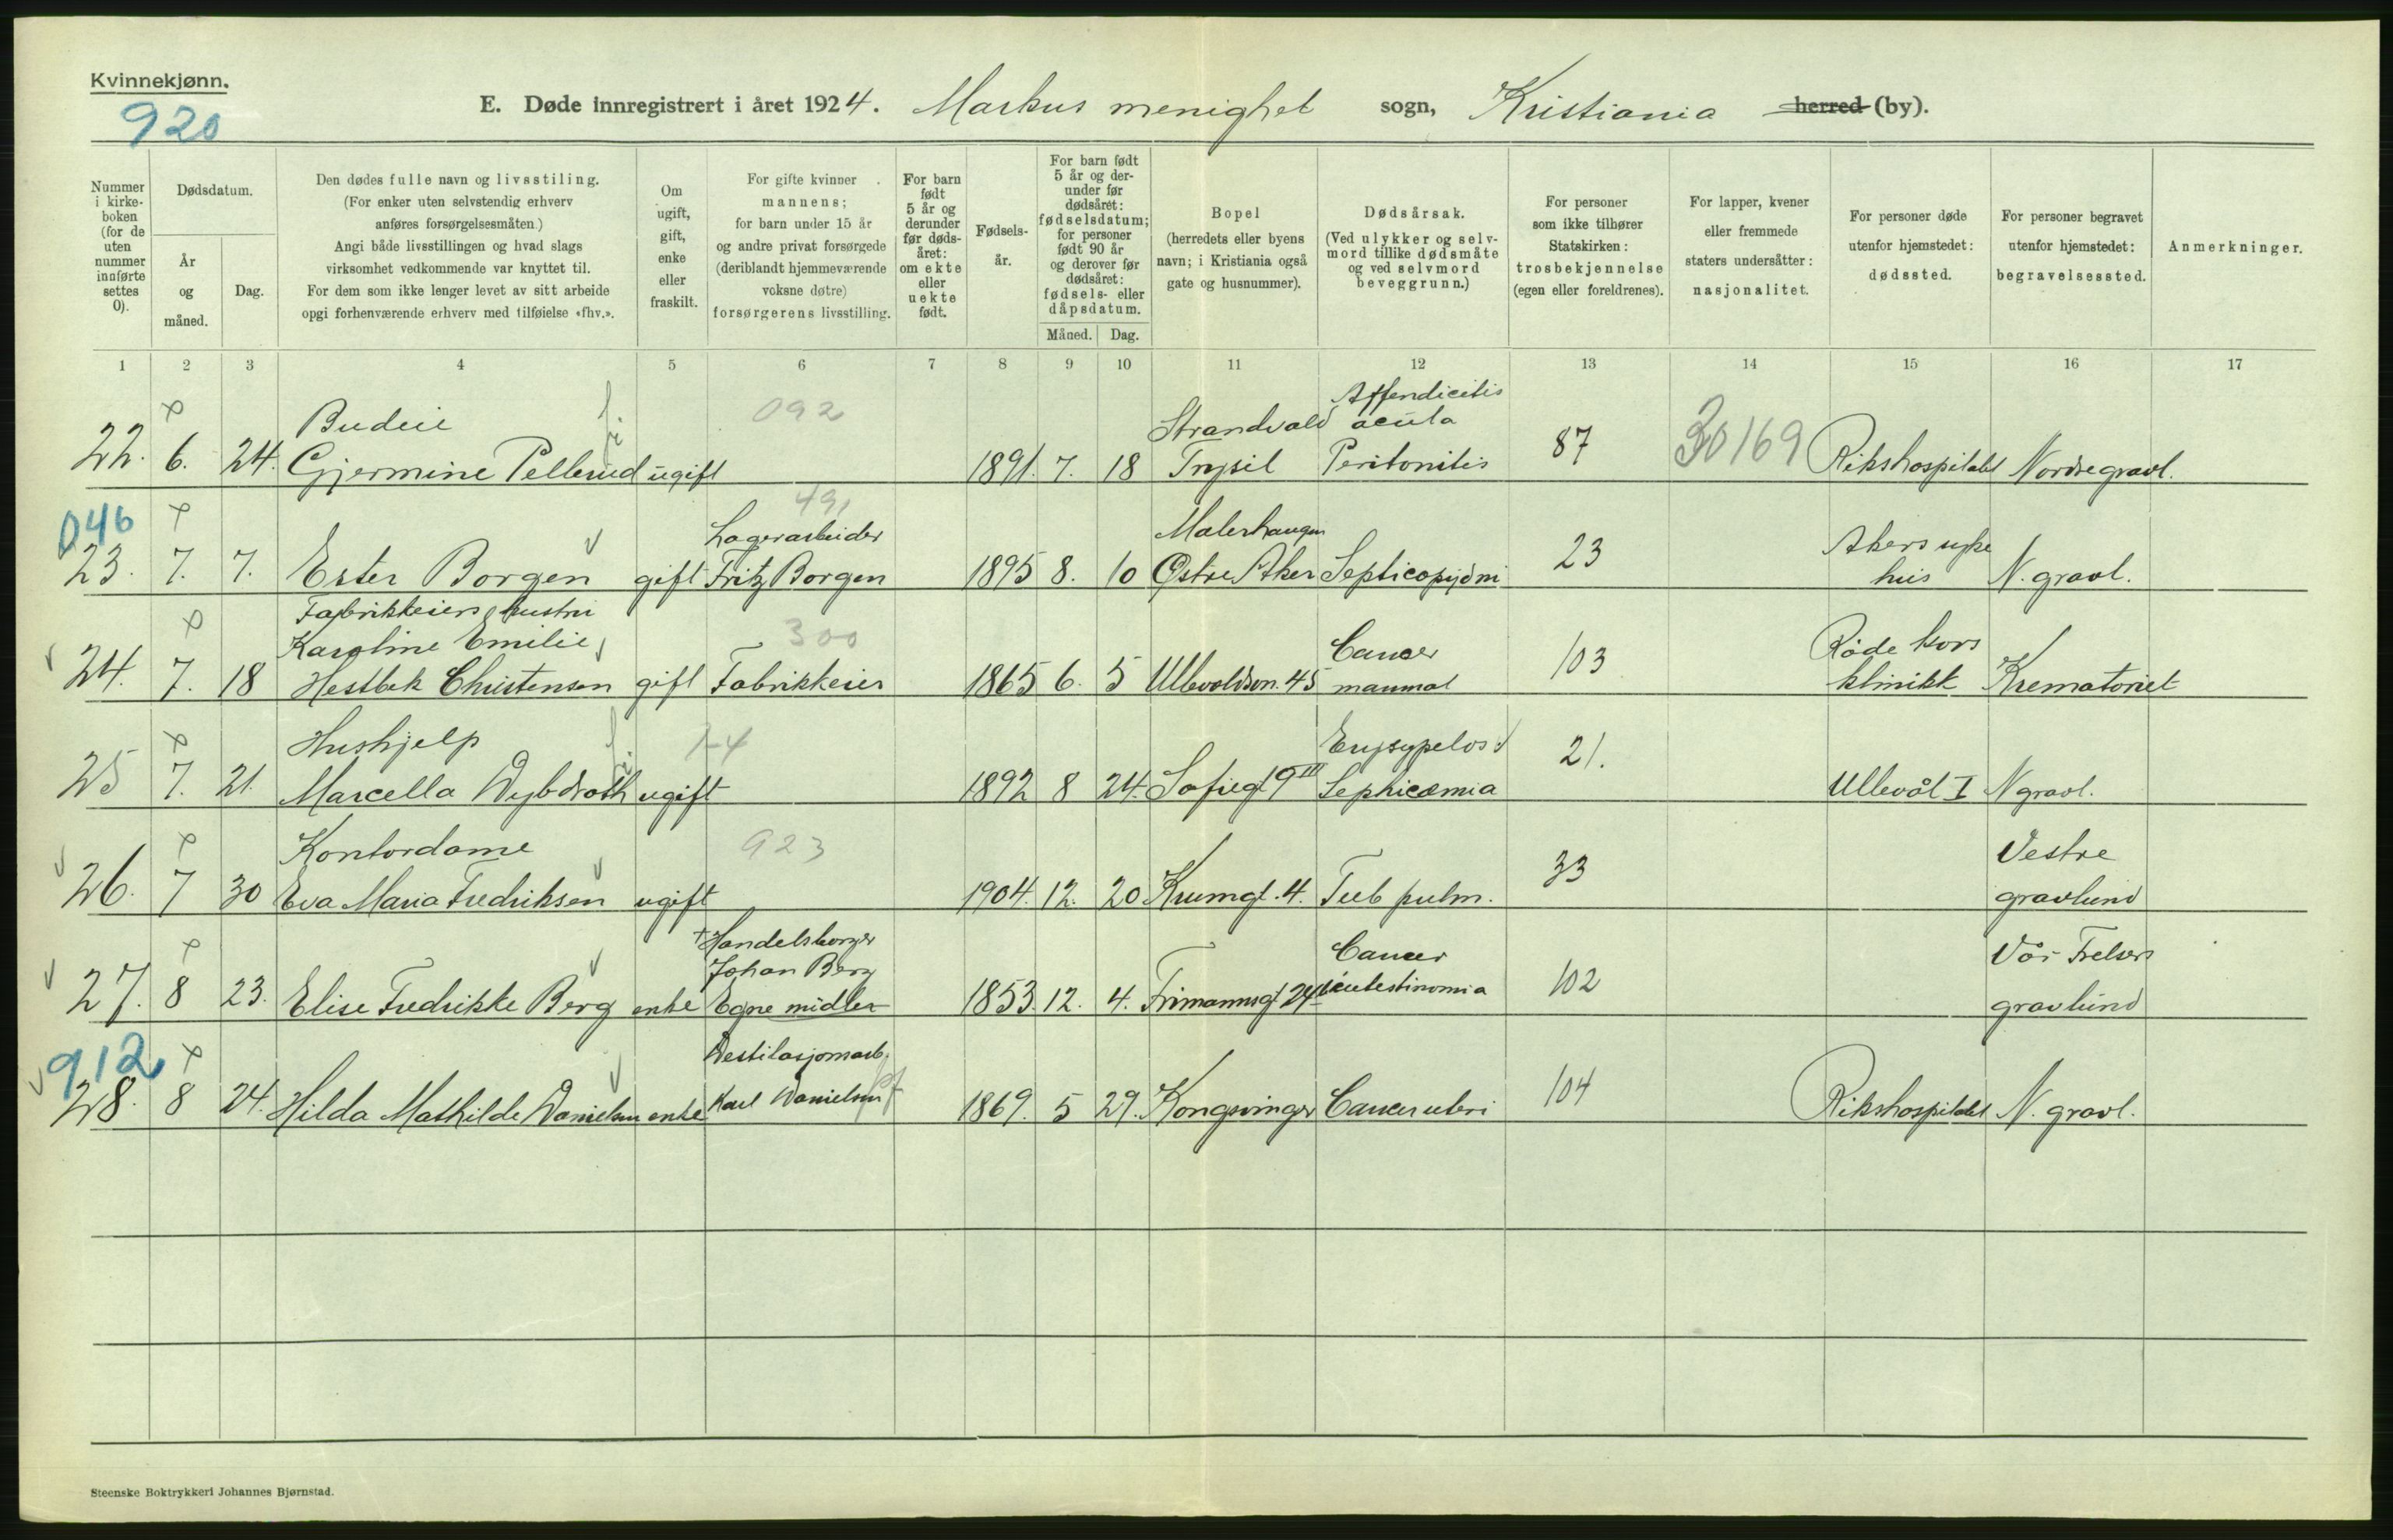 Kvinnekjønn.
920
E. Døde innregistrert i året 1924. Markus menighet sogn, Kristiania herred (by).
Nummer i kirke- boken (for de uten nummer innførte settes 0).
Dødsdatum.
År og måned.
Dag.
Den dødes fulle navn og livsstiling.
(For enker uten selvstendig erhverv
anføres forsørgelsesmåten.)
Angi både livsstillingen og hvad slags
virksomhet vedkommende var knyttet til.
For dem som ikke lenger levet av sitt arbeide
opgi forhenværende erhverv med tilføielse «fhv.».
Om ugift, gift, enke eller fraskilt.
For gifte kvinner
mannens;
for barn under 15 år
og andre privat forsørgede
(deriblandt hjemmeværende
voksne døtre)
forsørgerens livsstilling.
For barn født 5 år og derunder før døds- året: om ekte eller uekte født.
Fødsels- år.
For barn født 5 år og der- under før dødsåret: fødselsdatum; for personer født 90 år og derover før dødsåret: fødsels- eller dåpsdatum.
Måned. Dag.
Bopel
(herredets eller byens
navn; i Kristiania også
gate og husnummer).
Dødsårsak.
(Ved ulykker og selv-
mord tillike dødsmåte
og ved selvmord
beveggrunn.)
For personer
som ikke tilhører
Statskirken:
trosbekjennelse
(egen eller foreldrenes).
For lapper, kvener
eller fremmede
staters undersåtter:
nasjonalitet.
For personer døde
utenfor hjemstedet:
dødssted.
For personer begravet
utenfor hjemstedet:
begravelsessted.
Anmerkninger.
1 2 3 4 5 6 7 8 9 10 11 12 13 14 15 16 17
Budeie 092 Strandvold Appendicitis acuta
22. 6. 24. Gjermine Pellerud ugift 1891. 7. 18 Trysil Peritonitis 87 30169 Rikshospitalet Nordre gravl.
046 491
Lagerarbeider Malerhaugen Akers syke
23. 7. 7. Ester Borgen gift Fritz Borgen 1895 8. 10 Østre Aker Septicopyømi 23 hus N. gravl.
Fabrikkeiers hustru
Karoline Emilie 300 Cancer Røde kors
24. 7. 18 Hestbek Christensen gift Fabrikkeier 1865 6. 5 Ullevoldsvn. 45 mammal 103 klinikk Krematoriet
Hushjelp Erysypelos
25 7. 21. Marcella Wybdroth ugift 1892 8 24. Sofiegt 9 III Sephicæmia 21. Ullevål I N gravl.
Kontordame 923 Vestre
26. 7 30 Eva Maria Fredriksen ugift 1904. 12. 20 Krumgt. 4. Tub pulm. 33 gravlund
Handelsborger
Johan Berg Cancer Vår Frelsers
27. 8 23. Elise Fredrikke Berg enke Egne midler 1853. 12. 4. Frimannsgt 24 102 gravlund
912
Destilasjonsarb.
28. 8 24. Hilda Mathilde Danielsen enke Karl Danielsen 1869. 5 29. Kongsvinger Cancer uteri 104 Rikshospitalet N. gravl.
Steenske Boktrykkeri Johannes Bjørnstad.